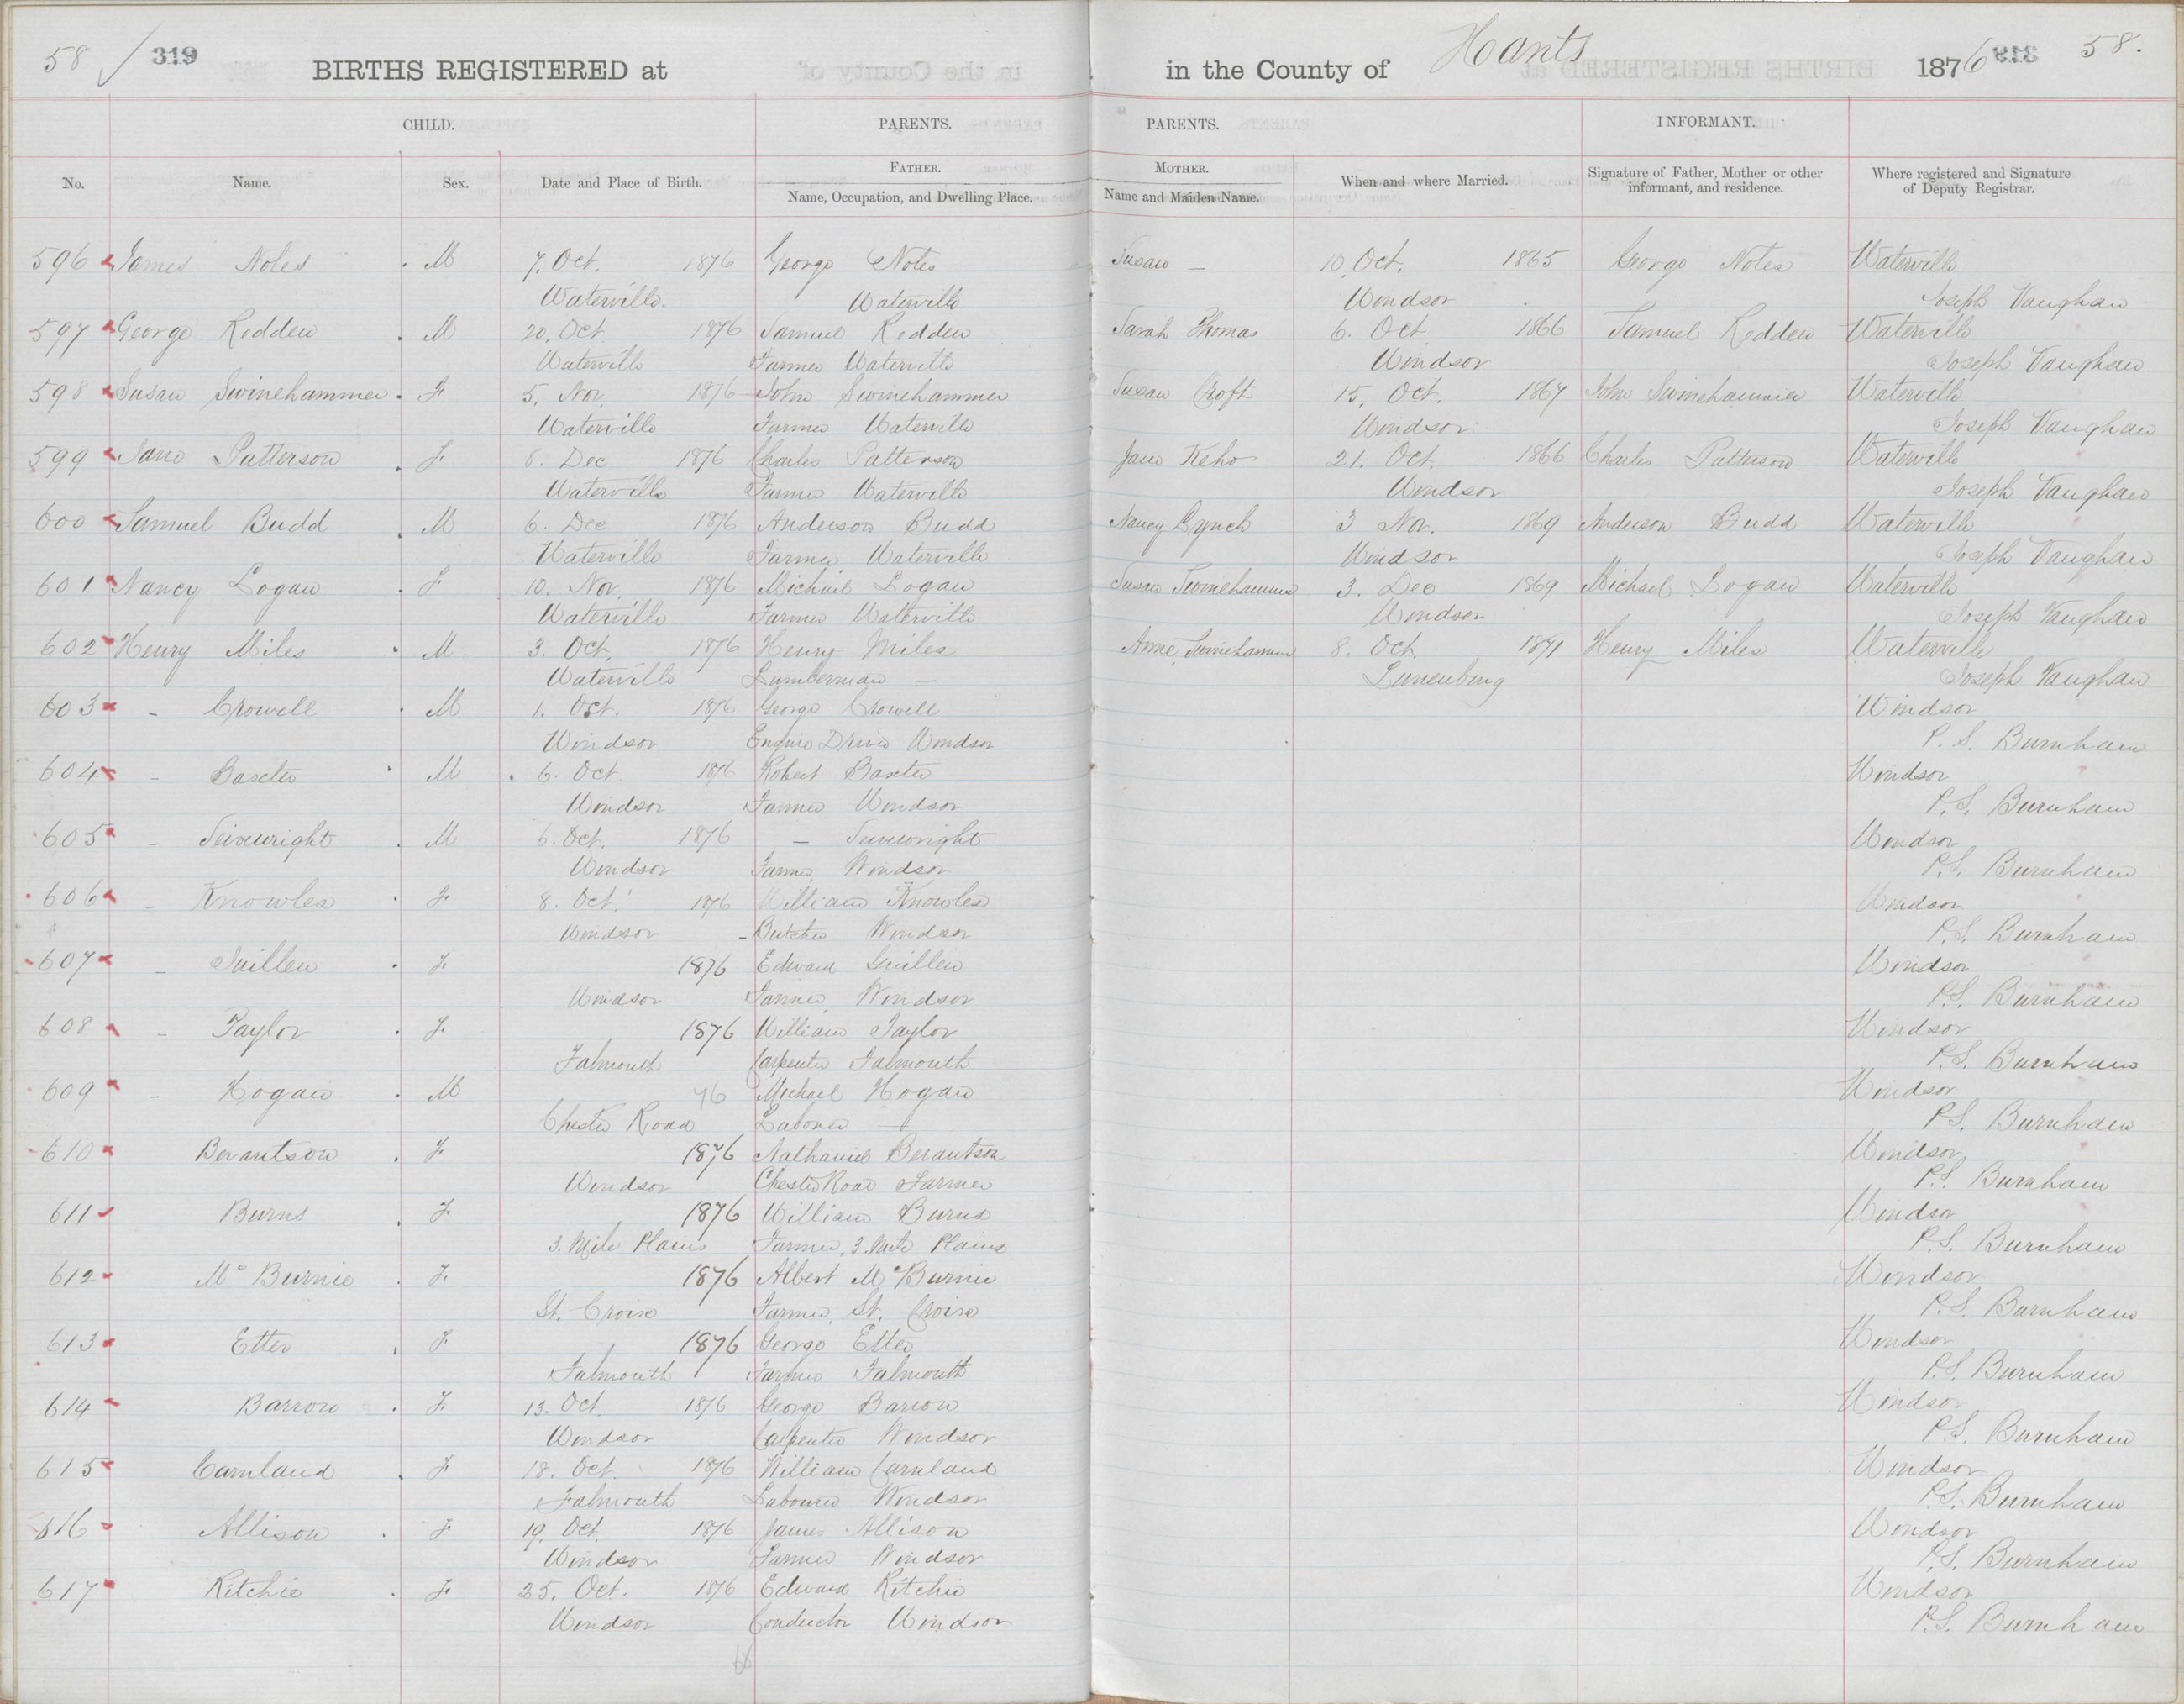 58 319 BIRTHS REGISTERED at in the County of Hants 1876 58.
CHILD. PARENTS. PARENTS. INFORMANT.
No. Name. Sex. Date and Place of Birth. FATHER. Name, Occupation, and Dwelling Place. MOTHER. Name and Maiden Name. When and where Married. Signature of Father, Mother or other informant, and residence. Where registered and Signature of Deputy Registrar.
596 James Notes M 7. Oct. 1876 George Notes Susan — 10. Oct. 1865 George Notes Waterville
Waterville. Waterville Windsor Joseph Vaughan
597 George Redden M 20. Oct 1876 Samuel Redden Sarah Thomas 6. Oct 1866 Samuel Redden Waterville
Waterville Farmer Waterville Windsor Joseph Vaughan
598 Susan Swinehammer F 5. Nov. 1876 John Swinehammer Susan Croft 15. Oct. 1867 John Swinehammer Waterville
Waterville Farmer Waterville Windsor Joseph Vaughan
599 Jane Patterson F. Dec 1876 Charles Patterson Jane Keho 21. Oct. 1866 Charles Patterson Waterville
Waterville Farmer Waterville Windsor Joseph Vaughan
600 Samuel Budd M 6. Dec 1876 Anderson Budd Nancy Lynch 3 Nov. 1869 Anderson Budd Waterville
Waterville Farmer Waterville Windsor Joseph Vaughan
601 Nancy Logan F 10. Nov. 1876 Michail Logan Susan Swinehammer 3. Dec 1869 Michael Logan Waterville
Waterville Farmer Waterville Windsor Joseph Vaughan
602 Henry Miles M 3. Oct. 1876 Henry Miles Anne Swinehammer 8. Oct. 1871 Henry Miles Waterville
Waterville Lumberman — Lunenburg Joseph Vaughan
603 - Crowell M 1. Oct. 1876 George Crowell Windsor
Windsor Engine Driver Windsor P. S. Burnham
604 - Baxter M 6. Oct. 1876 Robert Baxter Windsor
Windsor Farmer Windsor P. S. Burnham
605 - M 6. Oct. 1876 — Windsor
Windsor Farmer Windsor P. S. Burnham
606 - Knowles F. 8. Oct. 1876 William Knowles Windsor
Windsor Butcher Windsor P. S. Burnham
607 - F. 1876 Edward Guillen Windsor
Windsor Farmer Windsor P. S. Burnham
608 - Taylor F. 1876 William Taylor Windsor
Falmouth Carpenter Falmouth P. S. Burnham
609 - Hogan M 76 Michael Hogan Windsor
Chester Road Laborer — P. S. Burnham
610 F. 1876 Nathaniel Windsor
Windsor Chester Road Farmer P. S. Burnham
611 Burns F. 1876 William Burns Windsor
3. Mile Plains Farmer, 3. Mile Plains P. S. Burnham
612 Mc Burnie F. 1876 Albert Mc Burnie Windsor
St. Croix Farmer, St. Croix P. S. Burnham
613 Etter F. 1876 George Etter Windsor
Falmouth Farmer Falmouth P. S. Burnham
614 Barrow F. 13. Oct. 1876 George Barrow Windsor
Windsor Carpenter Windsor P. S. Burnham
615 Carnland F 18. Oct. 1876 William Carnland Windsor
Falmouth Labourer Windsor P. S. Burnham
616 Allison F 19. Oct. 1876 James Allison Windsor
Windsor Farmer Windsor P. S. Burnham
617 Ritchie F. 25. Oct. 1876 Edward Ritchie Windsor
Windsor Conductor Windsor P. S. Burnham